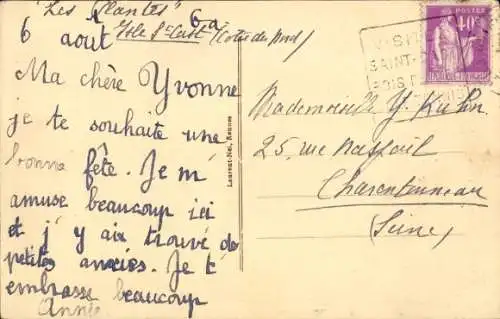 "Les Plantes"
6 août
Isle St Cast (Côtes du Nord)
Ma chère Yvonne
je te souhaite une
bonne fête. Je m'
amuse beaucoup ici
et j'y aix trouvé de
petites amies. Je t'
embrasse beaucoup
Année
Laurent-Nel, Rennes
POSTES
40c
VISIT
SAINT-
Mademoiselle Y. Kuhn
25, rue
Charentonneau
(Seine)